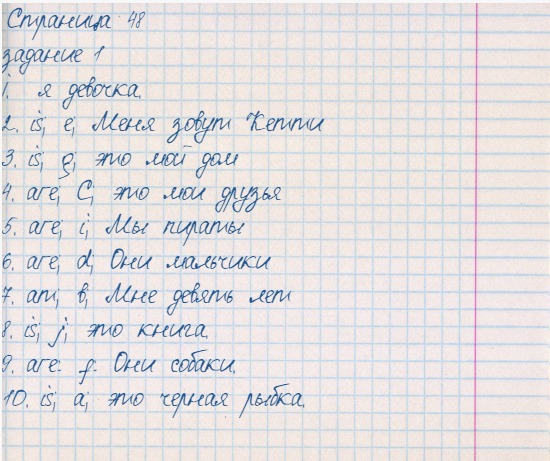 Страница 48
задание 1
1. я девочка.
2. is; e; Меня зовут Кетти
3. is; g; это мой дом
4. are; C; это мои друзья
5. are; i; Мы пираты
6. are; d; Они мальчики
7. am; b; Мне девять лет
8. is; j; это книга.
9. are. f. Они собаки.
10. is; a; это черная рыбка.